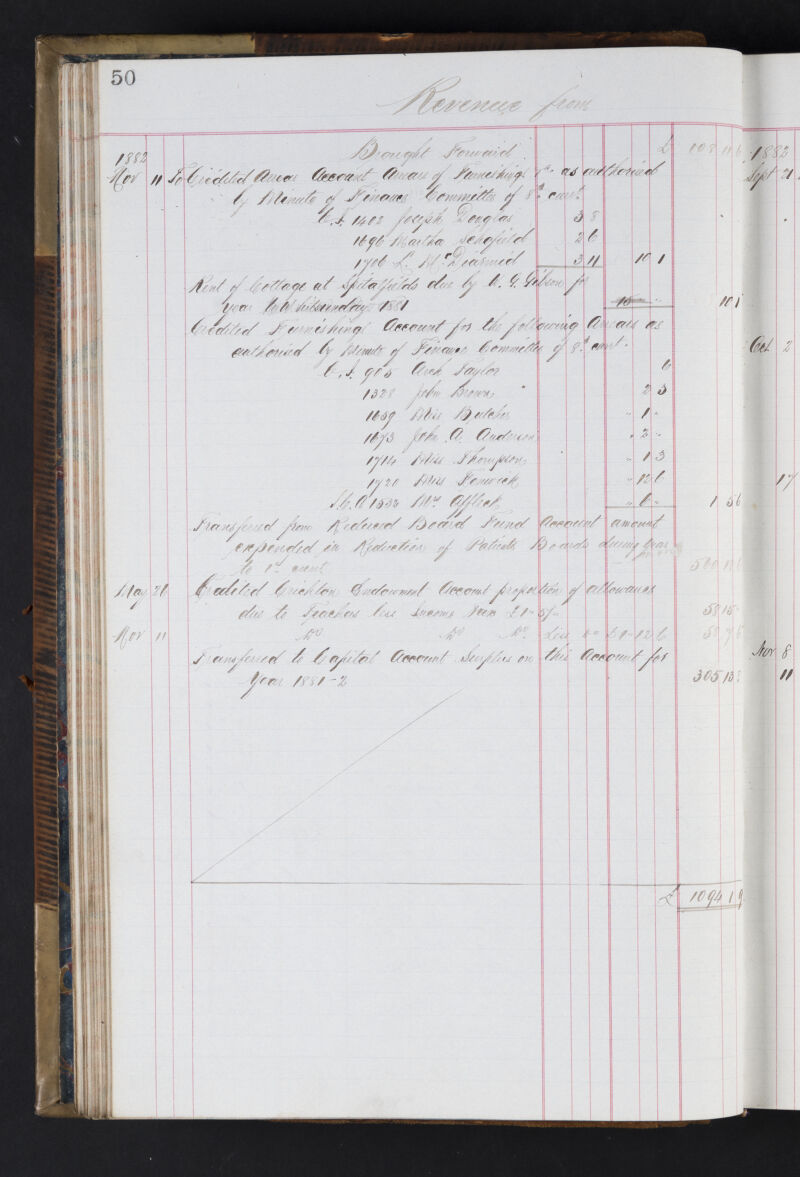 50
Revenue from
1882 Brought Forward £ 108 11 6
Nov 11 To Credited Arrear Account Arrears of Furnishings &c as authorised
by Minute of Finance Committee of 8th curt.
C.I. 1402 Joseph Douglas 3 8
1696 Martha Schofield 2 6
1706 L. McDearmed 3 11 10 1
Rent of Cottage at Spitalfields due by W. G. Gibson for
year to Whitsunday 1881 10 1
Credited Furnishing Account for the following Arrears as
authorised by Minute of Finance Committee of 8th curt.
C.I. 905 Arch Taylor 6
1328 John Brown 2 3
1659 Miss Butcher " 1 "
1673 John A. Anderson " 2 "
1714 Miss Thompson " 1 3
1720 Miss Fenwick " 12 6
S.C.A 1532 Mrs Affleck " 6 " 1 5 6
Transferred from Reduced Board Fund Account amount
expended in Reduction of Patients Boards during year
to 1st curt 500
May 21 Credited Crichton Endowment Account proportion of allowances
due to Teachers less Income Tax £1-5/- 58 15
Nov 11 Do Do Do Less Do £1-12-6
Transferred to Capital Account Surplus on this Account for
Year 1881-2 305 13
£ 1094 1 9
1883
Sept 21
Oct 2
17
Nov 8
11